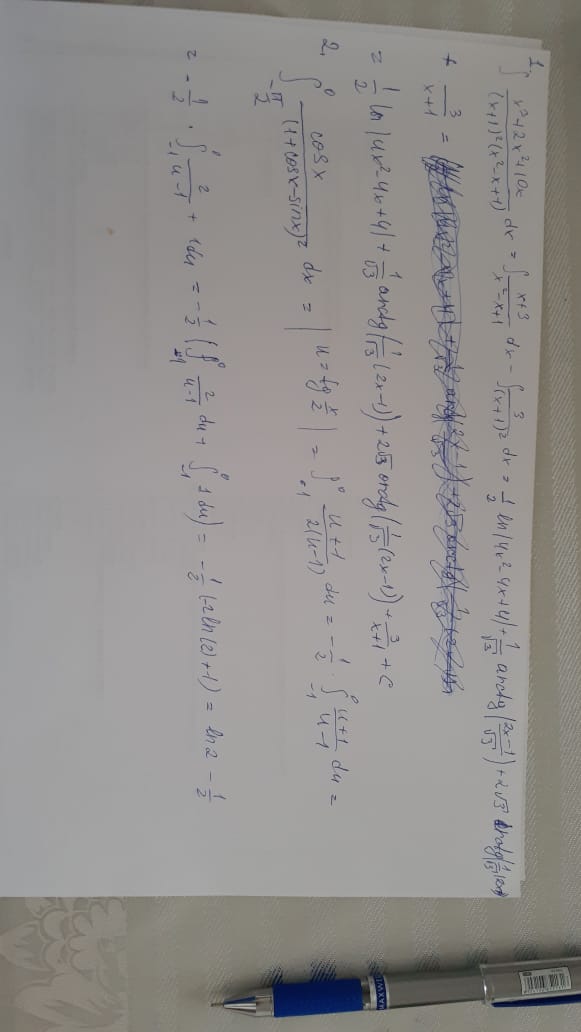 1. ∫ x³+2x²+10x / (x+1)²(x²-x+1) dx = ∫ x+3 / x²-x+1 dx - ∫ 3 / (x+1)² dx = 1/2 ln|4x²-4x+4| + 1/√3 arctg(2x-1/√3) + 2√3 arctg(1/√3
+ 3/x+1 =
= 1/2 ln|4x²-4x+4| + 1/√3 arctg(1/√3(2x-1)) + 2√3 arctg(1/√3(2x-1)) + 3/x+1 + C
2. ∫₋π/2⁰ cosx / (1+cosx-sinx)² dx = | u = tg x/2 | = ∫₋₁⁰ u+1 / 2(u-1) du = -1/2 · ∫₋₁⁰ u+1 / u-1 du =
= -1/2 · ∫₋₁⁰ 2/u-1 + 1du = -1/2 (∫₋₁⁰ 2/u-1 du + ∫₋₁⁰ 1du) = -1/2(-2ln(2)+1) = ln2 - 1/2
MAXWI